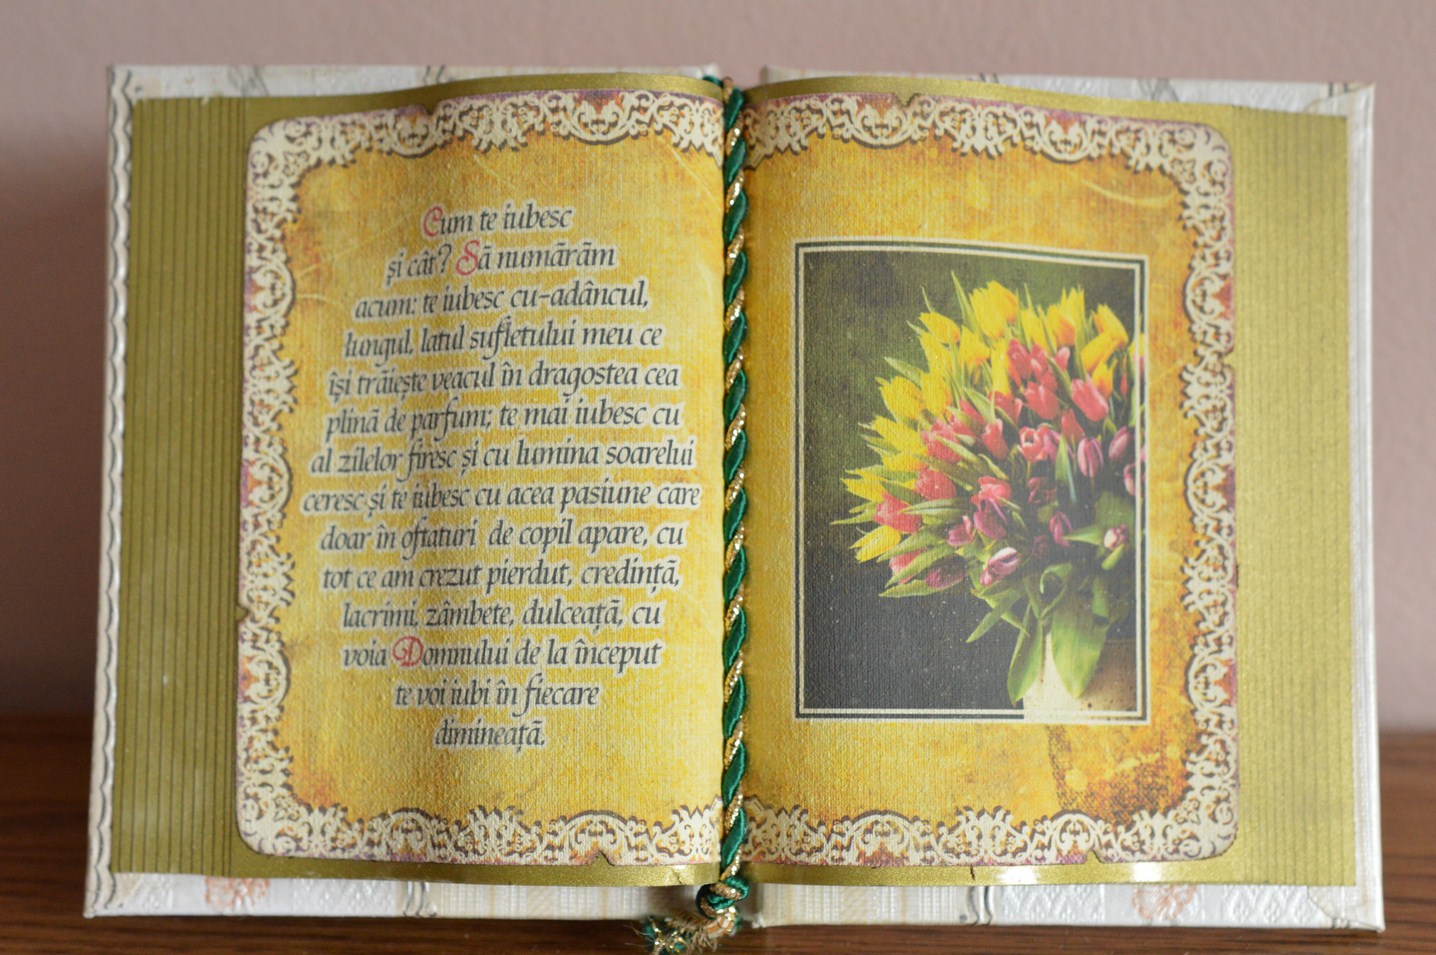 Cum te iubesc
și cât? Să numărăm
acum: te iubesc cu-adâncul,
lungul, latul sufletului meu ce
își trăiește veacul în dragostea cea
plină de parfum; te mai iubesc cu
al zilelor firesc și cu lumina soarelui
ceresc și te iubesc cu acea pasiune care
doar în oftaturi de copil apare, cu
tot ce am crezut pierdut, credință,
lacrimi, zâmbete, dulceață, cu
voia Domnului de la început
te voi iubi în fiecare
dimineață.